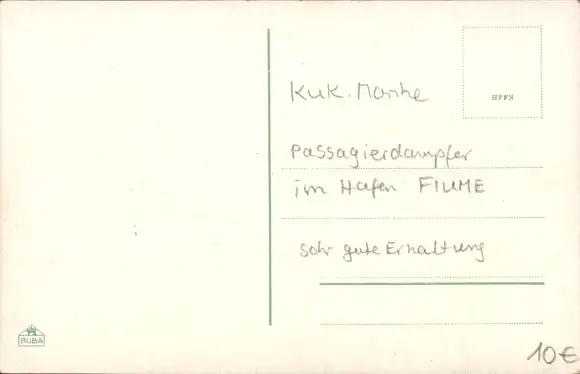 HPFN
KuK. Marine
Passagierdampfer
im Hafen FIUME
sehr gute Erhaltung
RUBA
10€